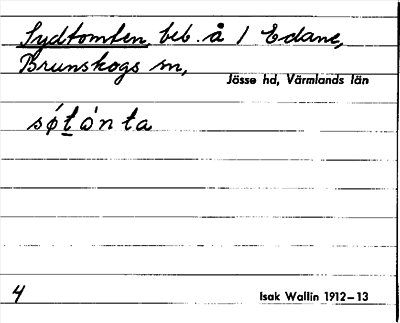 Sydtomten, beb. å 1 Edane,
Brunskogs sn,
Jösse hd, Värmlands län
sǿt̲ὼnta
4 Isak Wallin 1912–13